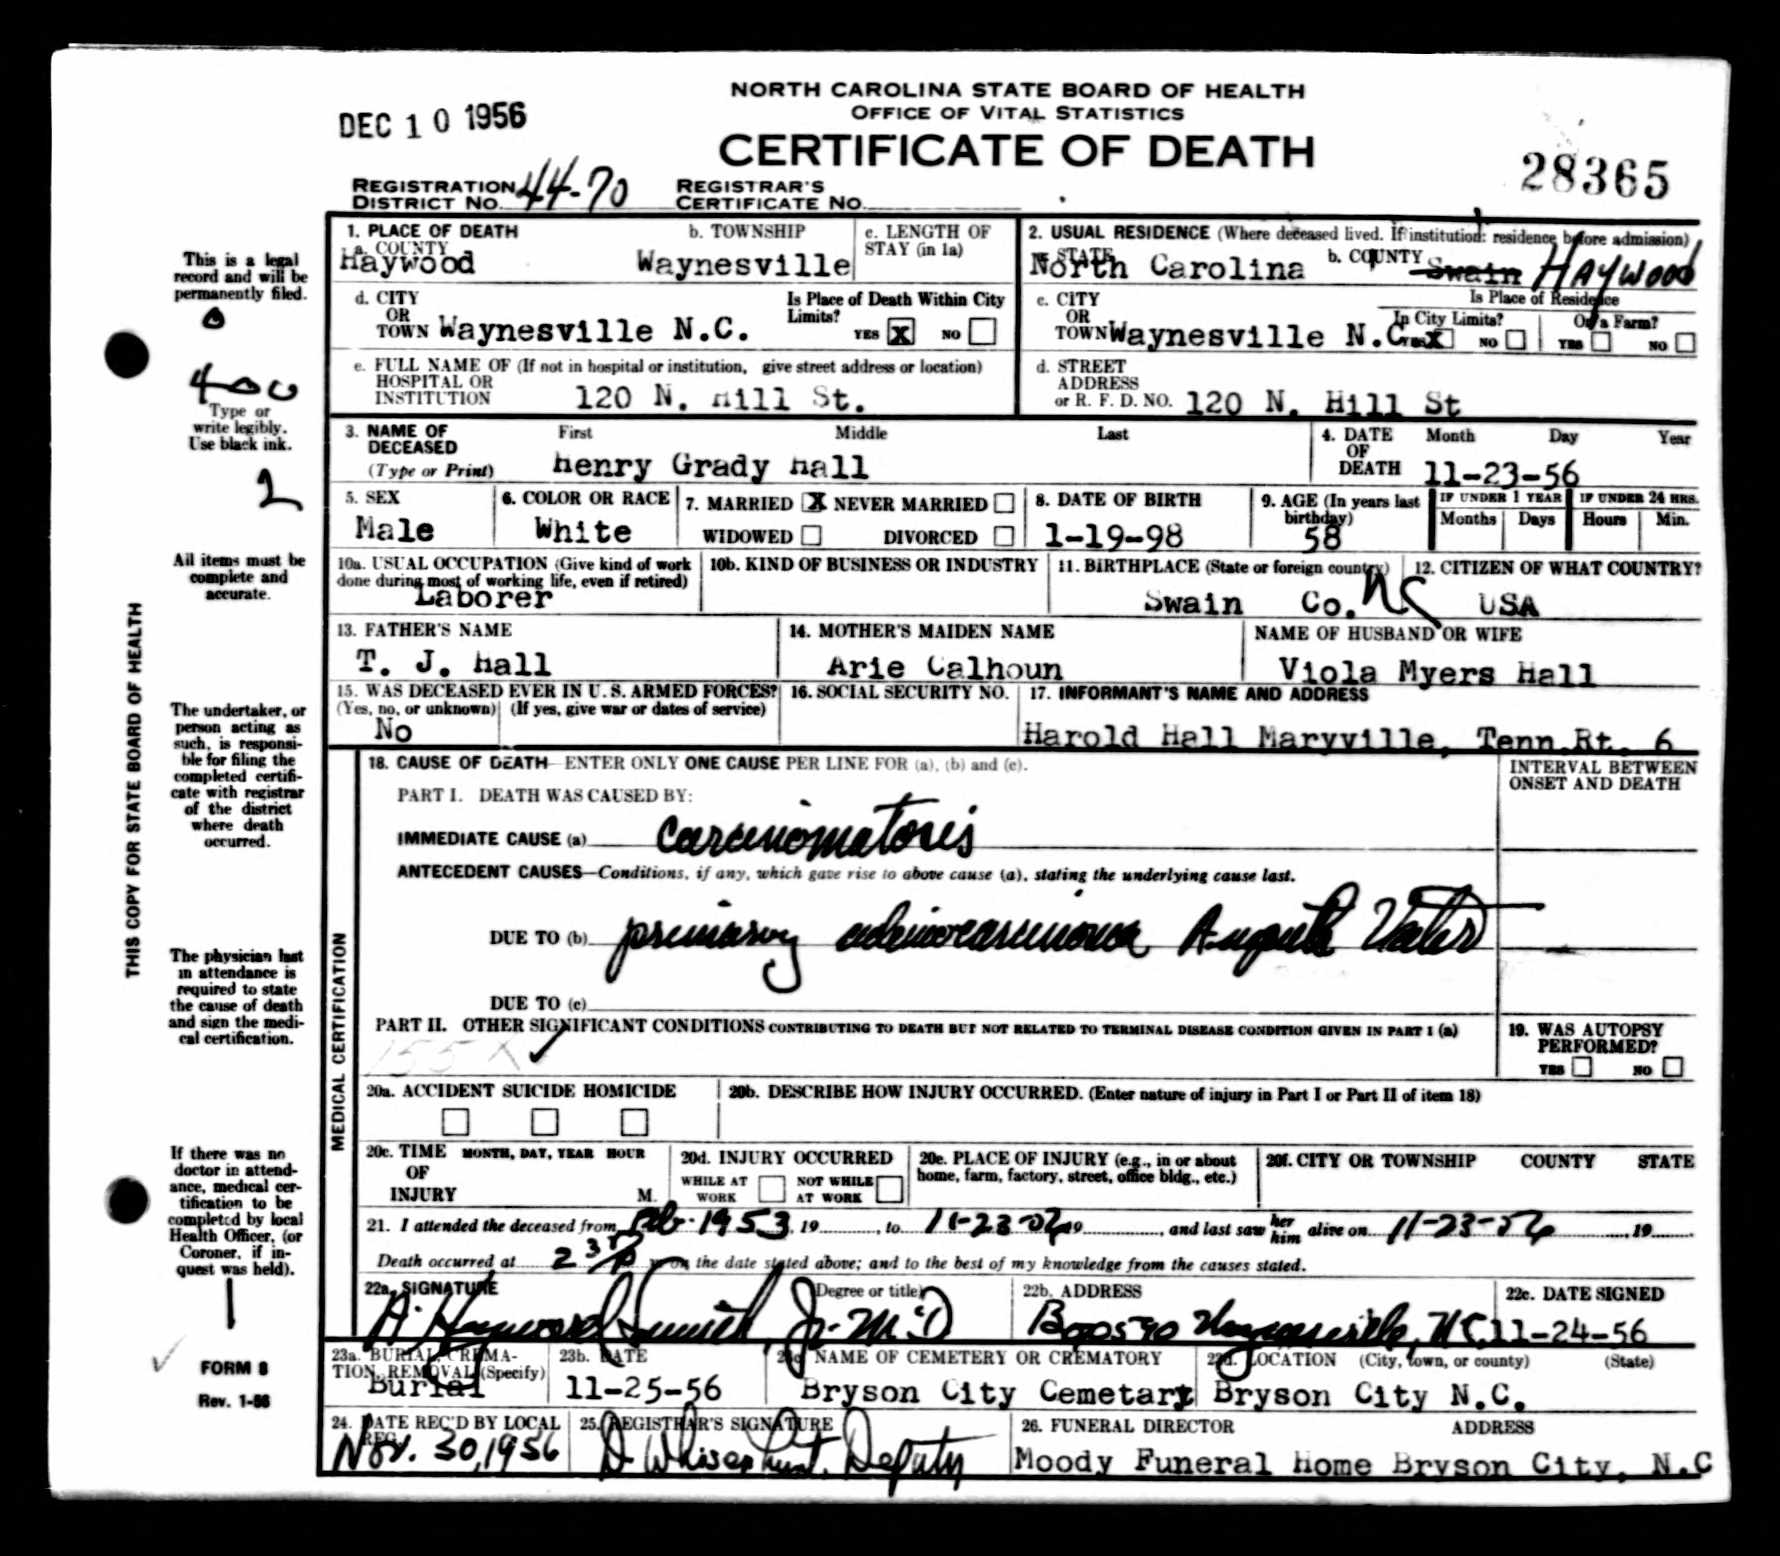 NORTH CAROLINA STATE BOARD OF HEALTH
OFFICE OF VITAL STATISTICS
DEC 10 1956
CERTIFICATE OF DEATH
28365
REGISTRATION DISTRICT NO. 44-70 REGISTRAR'S CERTIFICATE NO.
1. PLACE OF DEATH b. TOWNSHIP c. LENGTH OF STAY (in 1a)
a. COUNTY Haywood Waynesville
2. USUAL RESIDENCE (Where deceased lived. If institution: residence before admission)
a. STATE North Carolina b. COUNTY Swain HAYWOOD
d. CITY OR TOWN Waynesville N.C. Is Place of Death Within City Limits? YES X NO
c. CITY OR TOWN Waynesville N.C. Is Place of Residence In City Limits? YES X NO On a Farm? YES NO
e. FULL NAME OF HOSPITAL OR INSTITUTION (If not in hospital or institution, give street address or location) 120 N. Hill St.
d. STREET ADDRESS or R. F. D. NO. 120 N. Hill St
3. NAME OF DECEASED (Type or Print) First Middle Last
Henry Grady Hall
4. DATE OF DEATH Month Day Year
11-23-56
5. SEX Male
6. COLOR OR RACE White
7. MARRIED X NEVER MARRIED
WIDOWED DIVORCED
8. DATE OF BIRTH 1-19-98
9. AGE (In years last birthday) 58
IF UNDER 1 YEAR Months Days
IF UNDER 24 HRS. Hours Min.
10a. USUAL OCCUPATION (Give kind of work done during most of working life, even if retired) Laborer
10b. KIND OF BUSINESS OR INDUSTRY
11. BIRTHPLACE (State or foreign country) Swain Co. NC
12. CITIZEN OF WHAT COUNTRY? USA
13. FATHER'S NAME T. J. Hall
14. MOTHER'S MAIDEN NAME Arie Calhoun
NAME OF HUSBAND OR WIFE Viola Myers Hall
15. WAS DECEASED EVER IN U. S. ARMED FORCES?
(Yes, no, or unknown) (If yes, give war or dates of service)
No
16. SOCIAL SECURITY NO.
17. INFORMANT'S NAME AND ADDRESS
Harold Hall Maryville, Tenn. Rt. 6
18. CAUSE OF DEATH—ENTER ONLY ONE CAUSE PER LINE FOR (a), (b) and (c).
INTERVAL BETWEEN ONSET AND DEATH
PART I. DEATH WAS CAUSED BY:
IMMEDIATE CAUSE (a) Carcinomatosis
ANTECEDENT CAUSES—Conditions, if any, which gave rise to above cause (a), stating the underlying cause last.
DUE TO (b) primary adenocarcinoma Ampulla Vater
DUE TO (c)
PART II. OTHER SIGNIFICANT CONDITIONS CONTRIBUTING TO DEATH BUT NOT RELATED TO TERMINAL DISEASE CONDITION GIVEN IN PART I (a)
155X ✓
19. WAS AUTOPSY PERFORMED?
YES NO
20a. ACCIDENT SUICIDE HOMICIDE
20b. DESCRIBE HOW INJURY OCCURRED. (Enter nature of injury in Part I or Part II of item 18)
20c. TIME OF INJURY MONTH, DAY, YEAR HOUR M.
20d. INJURY OCCURRED
WHILE AT WORK NOT WHILE AT WORK
20e. PLACE OF INJURY (e.g., in or about home, farm, factory, street, office bldg., etc.)
20f. CITY OR TOWNSHIP COUNTY STATE
21. I attended the deceased from Feb. 1953, 19 , to 11-23-56 19 , and last saw her him alive on 11-23-56 , 19
Death occurred at on the date stated above; and to the best of my knowledge from the causes stated.
22a. SIGNATURE (Degree or title) 22b. ADDRESS 22c. DATE SIGNED
A. Hayward Smith, Jr. M.D Box 590 Waynesville, N.C. 11-24-56
23a. BURIAL, CREMATION, REMOVAL (Specify) Burial
23b. DATE 11-25-56
23c. NAME OF CEMETERY OR CREMATORY Bryson City Cemetary
23d. LOCATION (City, town, or county) (State) Bryson City N.C.
24. DATE REC'D BY LOCAL REG. Nov. 30, 1956
25. REGISTRAR'S SIGNATURE D Whisenhunt, Deputy
26. FUNERAL DIRECTOR ADDRESS
Moody Funeral Home Bryson City, N.C
MEDICAL CERTIFICATION
THIS COPY FOR STATE BOARD OF HEALTH
This is a legal
record and will be
permanently filed.
0
400
Type or
write legibly.
Use black ink.
2
All items must be
complete and
accurate.
The undertaker, or
person acting as
such, is responsi-
ble for filing the
completed certifi-
cate with registrar
of the district
where death
occurred.
The physician last
in attendance is
required to state
the cause of death
and sign the medi-
cal certification.
If there was no
doctor in attend-
ance, medical cer-
tification to be
completed by local
Health Officer, (or
Coroner, if in-
quest was held).
1
✓
FORM 8
Rev. 1-56